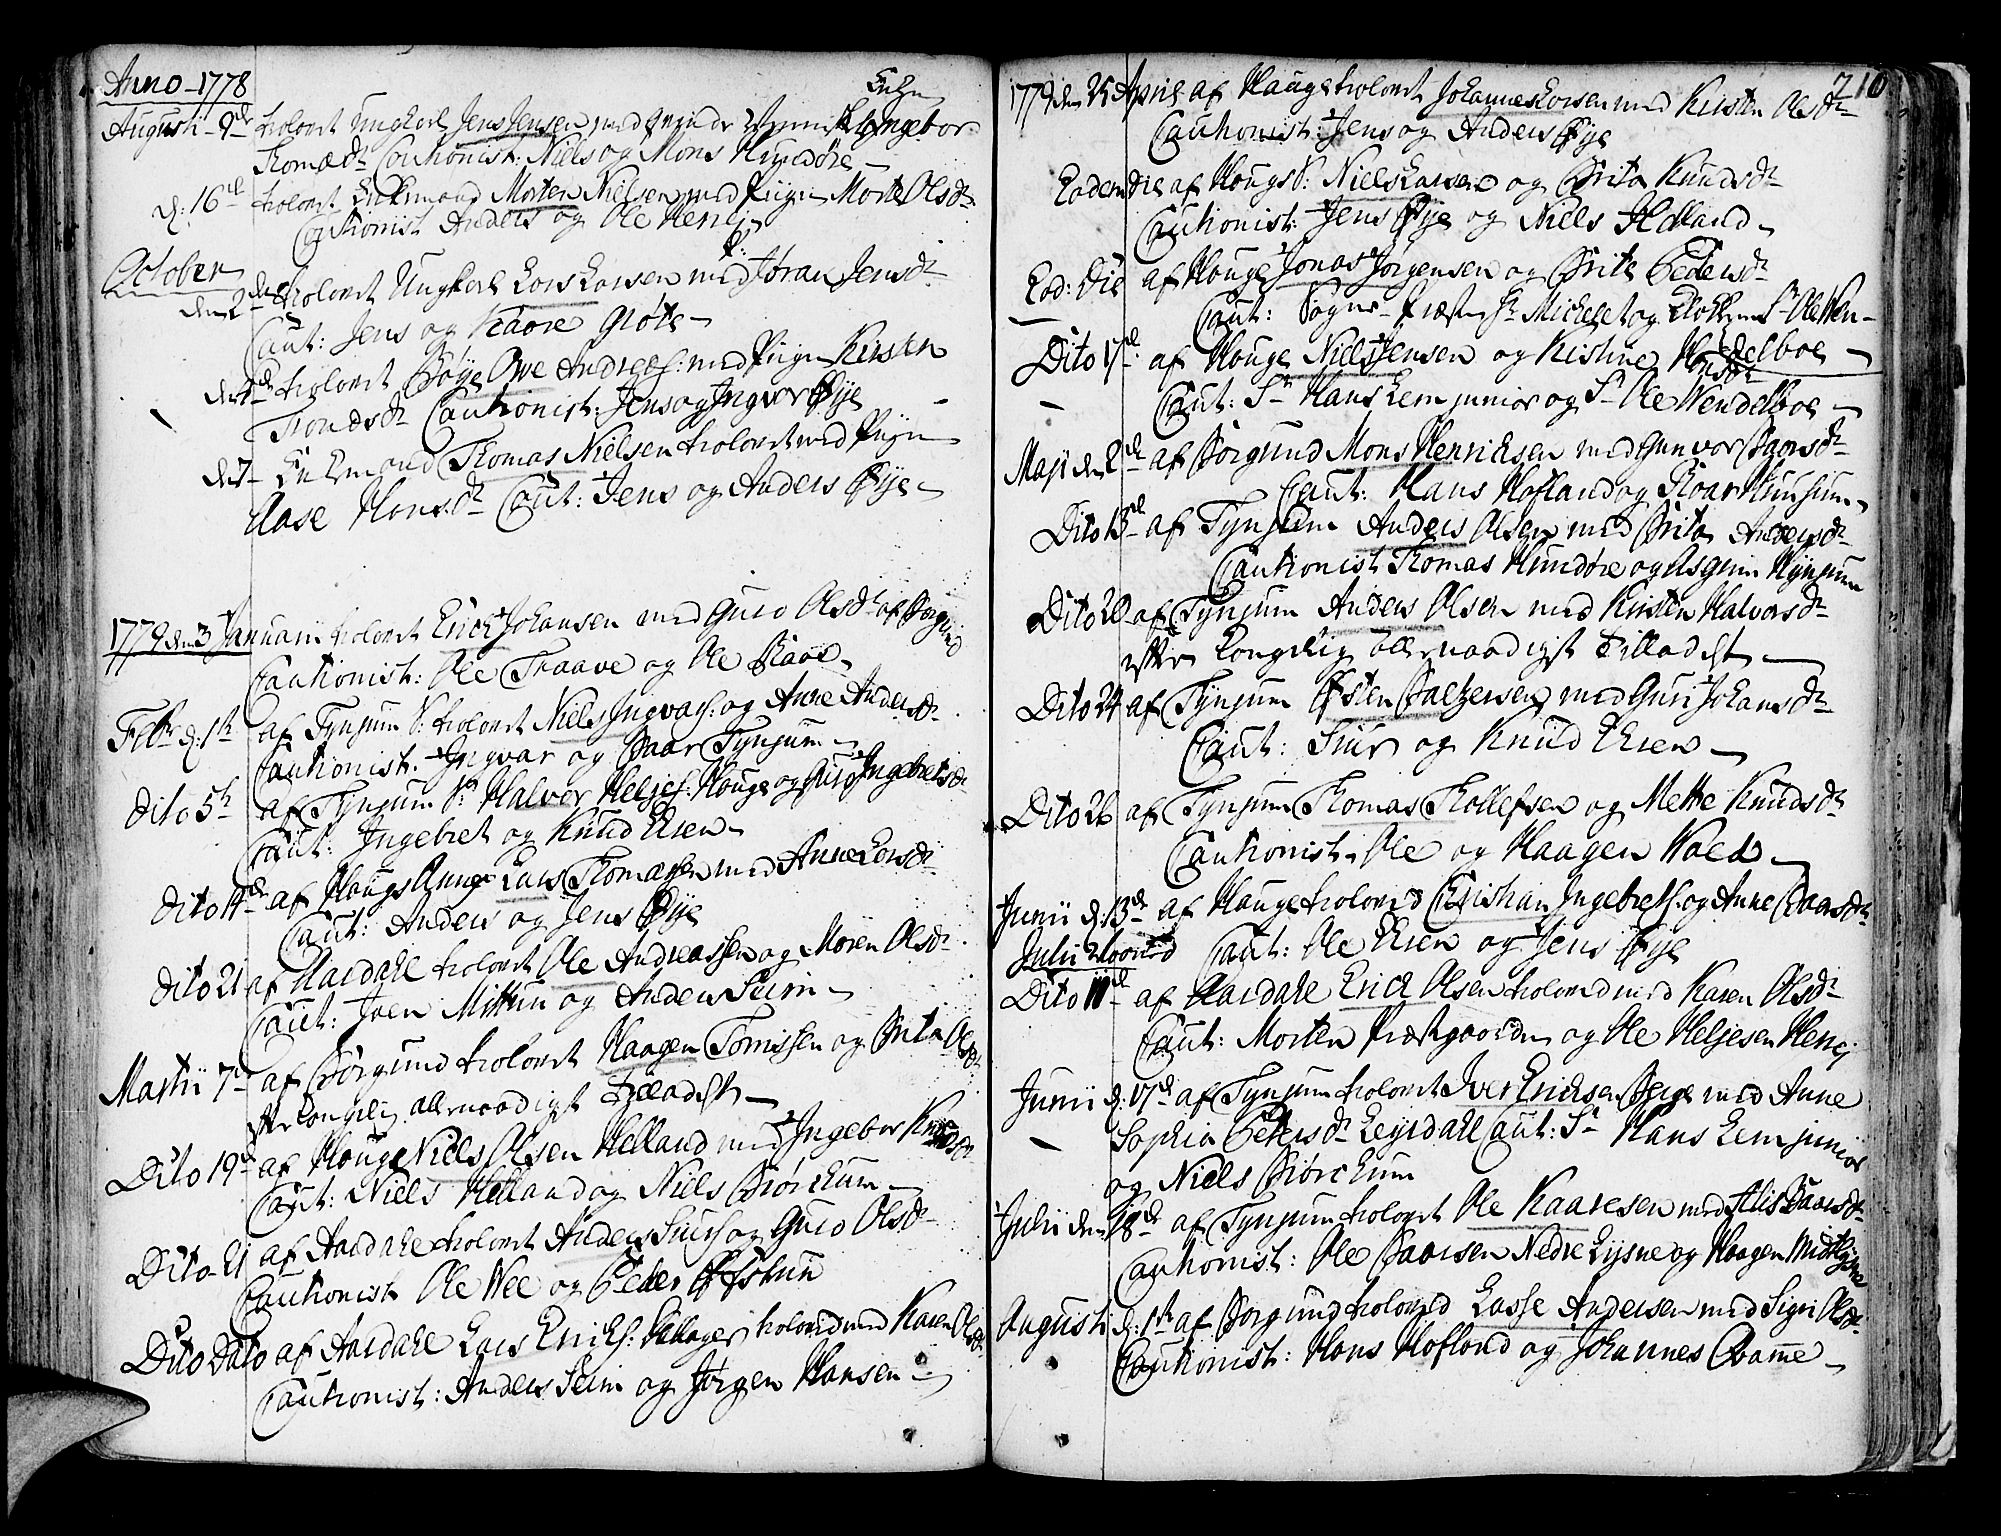 Anno 1778
Augusti 9de trolovet Ungkarl Jens Jensen med qvinde Ingebor
Thomæd: Cautionist: Niels og Mons Hundøre
d: 16de trolovet Enkemand Morten Nielsen med Pigen Marte Olsdr
Cautionist Anders og Ole Henj
October
den 2den trolovet Ungkarl Lars Larsen med P: Jøran Jensdr
Caut: Jens og Kaare Grøte
trolovet Ove Andreæs: med Pigen Kirsten
Trondsdr Cautionist: Jens og Ingvor Øye
Enkemand Thomas Nielsen trolovet med Pigen
Aase Hansdr Caut: Jens og Anders Øye
1779 den 3 Januarii trolovet Erich Johansen med Guro Olsdr af Borgund
Cautionist: Ole Traave og Ole Baar
Febr d: 1ste af Tynjum S: trolovet Niels Ingvars: og Anne Andersdr
Cautionist: Ingvar og Baar Tynjum
Dito 5te af Tynjum S: Halvor Heljes: Houge og Guro Ingebretsdr
Caut: Ingebret og Knud Eren
Dito 14de af Hougs Annex Lars Thomassen med Anne Larsdr
Caut: Anders og Jens Øye
Dito 21 af Aardahl trolovet Ole Andreassen og Maren Olsdr
Caut: Joen Mittun og Anders Seim
Martii 7de af Borgund trolovet Haagen Tomissen og Brita Olsdr
efter Kongelig allernaadigst Tilladelse
Dito 19de af Houge Niels Olsen Helland med Ingebor Knudsdr
Caut: Niels Helland og Niels Biørckum
Dito 21 af Aardahl trolovet Anders Siurs: og Guro Olsdr
Cautionist Ole Wee og Peder
Dito Dato af Aardahl Lars Erichs: troloved med Karen Olsdr
Cautionist: Anders Seim og Jørgen Hansen
210
1779 den 25 April af Hauge trolovet Johannes Larsen med Kirsten Olsdr
Cautionist: Jens og Anders Øye
Eodem Die af Hougs S: Niels Larsen og Brita Knudsdr
Cautionist: Jens Øye og Niels Helland
Eod: Die af Houge Jonas Jørgensen og Brite Pedersdr
Caut: Sogne-Præsten Hr Michelet og Klokkeren Sr Ole Wen-
delboe
Dito 17de af Houge Niels Jensen og Kirstine Hansdr
Caut: Sr Hans Lem junior og Sr Ole Wendelboe
Maji den 2de af Borgund Mons Henrichsen med Gunvor Baarsdr
Caut: Hans Hofland og Roar Hunjum
Dito 13de af Tynjum Anders Olsen med Brita Andersdr
Cautionist Thomas Hundøre og Asgiim Hynjum
Dito 20 af Tynjum Anders Olsen med Kirsten Halvorsdr
efter Kongelig allernaadigst Tilladelse
Dito 24 af Tynjum Østen Baltzersen med Guri Johansdr
Caut: Siur og Knud Eren
Dito 26 af Tynjum Thomas Thollefsen og Mette Knudsdr
Cautionist: Ole og Haagen Wold
Junii d: 13de af Hauge trolovet Christian Ingebrets: og Anne Baarsdr
Julii Maaned Caut: Ole Eren og Jens Øye
Dito 11de af Aardahl Erich Olsen trolovet med Karen Olsdr
Caut: Morten Præstgaarden og Ole Heljesen Henj
Junii d: 17de af Tynjum trolovet Iver Erichsen Berge med Anne
Sophia Petersdr Leyrdahl Caut: Sr Hans Lem junior
og Niels Biørckum
Julii den 18de af Tynjum trolovet Ole Kaaresen med Alis Baarsdr
Cautionist: Ole Baarsen Nedre Lysne og Haagen Midtlysne
Augusti d: 1ste af Borgund trolovet Lasse Andersen med Sigri Olsdr
Cautionist: Hans Hofland og Johannes Qvamme